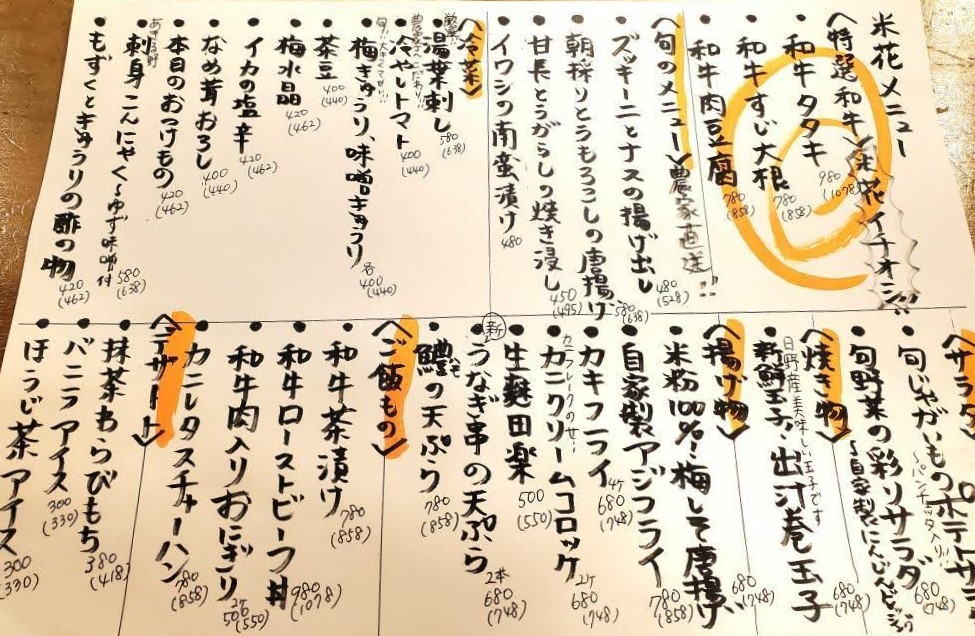 米花メニュー
〈特選和牛〉米花イチオシ!!
・和牛タタキ 980 (1078)
・和牛すじ大根 780 (858)
・和牛肉豆腐 780 (858)
〈旬のメニュー〉農家直送!!
・ズッキーニとナスの揚げ出し 480 (528)
・朝採りとうもろこしの唐揚げ 580 (638)
・甘長とうがらしの焼き浸し 450 (495)
・イワシの南蛮漬け 480
〈冷菜〉
・湯葉刺し 580 (638)
・冷やしトマト 400 (440)
・梅きゅうり、味噌きゅうり 各400 (440)
・茶豆 400 (440)
・梅水晶 420 (462)
・イカの塩辛 420 (462)
・なめ茸おろし 400 (440)
・本日のおつけもの 420 (462)
あきる野
・刺身こんにゃく〜ゆず味噌付 580 (638)
・もずくときゅうりの酢の物 420 (462)
〈サラダ
・旬じゃがいものポテサラ
〜パンチェッタ入り〜 680 (748)
・旬野菜の彩りサラダ 680 (748)
〈焼き物〉
日野産美味しい玉子です
・新鮮玉子・出汁巻玉子 680 (748)
〈揚げ物〉
・米粉100%!梅しそ唐揚げ 680 (748)
・自家製アジフライ 780 (858)
・カキフライ 4ケ 680 (748)
・カニクリームコロッケ 2ケ 680 (748)
・生麩田楽 500 (550)
新 うなぎ串の天ぷら 2本 680 (748)
・鱧の天ぷら 780 (858)
ハモ
〈ご飯もの〉
・和牛茶漬け 780 (858)
・和牛ローストビーフ丼 980 (1078)
・和牛肉入りおにぎり 2ケ 500 (550)
・カニレタスチャーハン 780 (858)
〈デザート〉
・抹茶わらびもち 380 (418)
・バニラアイス 300 (330)
・ほうじ茶アイス 300 (330)